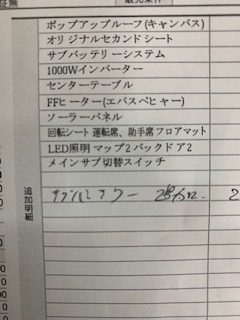 販売条件
ポップアップルーフ(キャンバス)
オリジナルセカンドシート
サブバッテリーシステム
1000Wインバーター
センターテーブル
FFヒーター(エバスペヒャー)
ソーラーパネル
回転シート 運転席、助手席フロアマット
LED照明 マップ2バックドア2
メインサブ切替スイッチ
追加明細
2